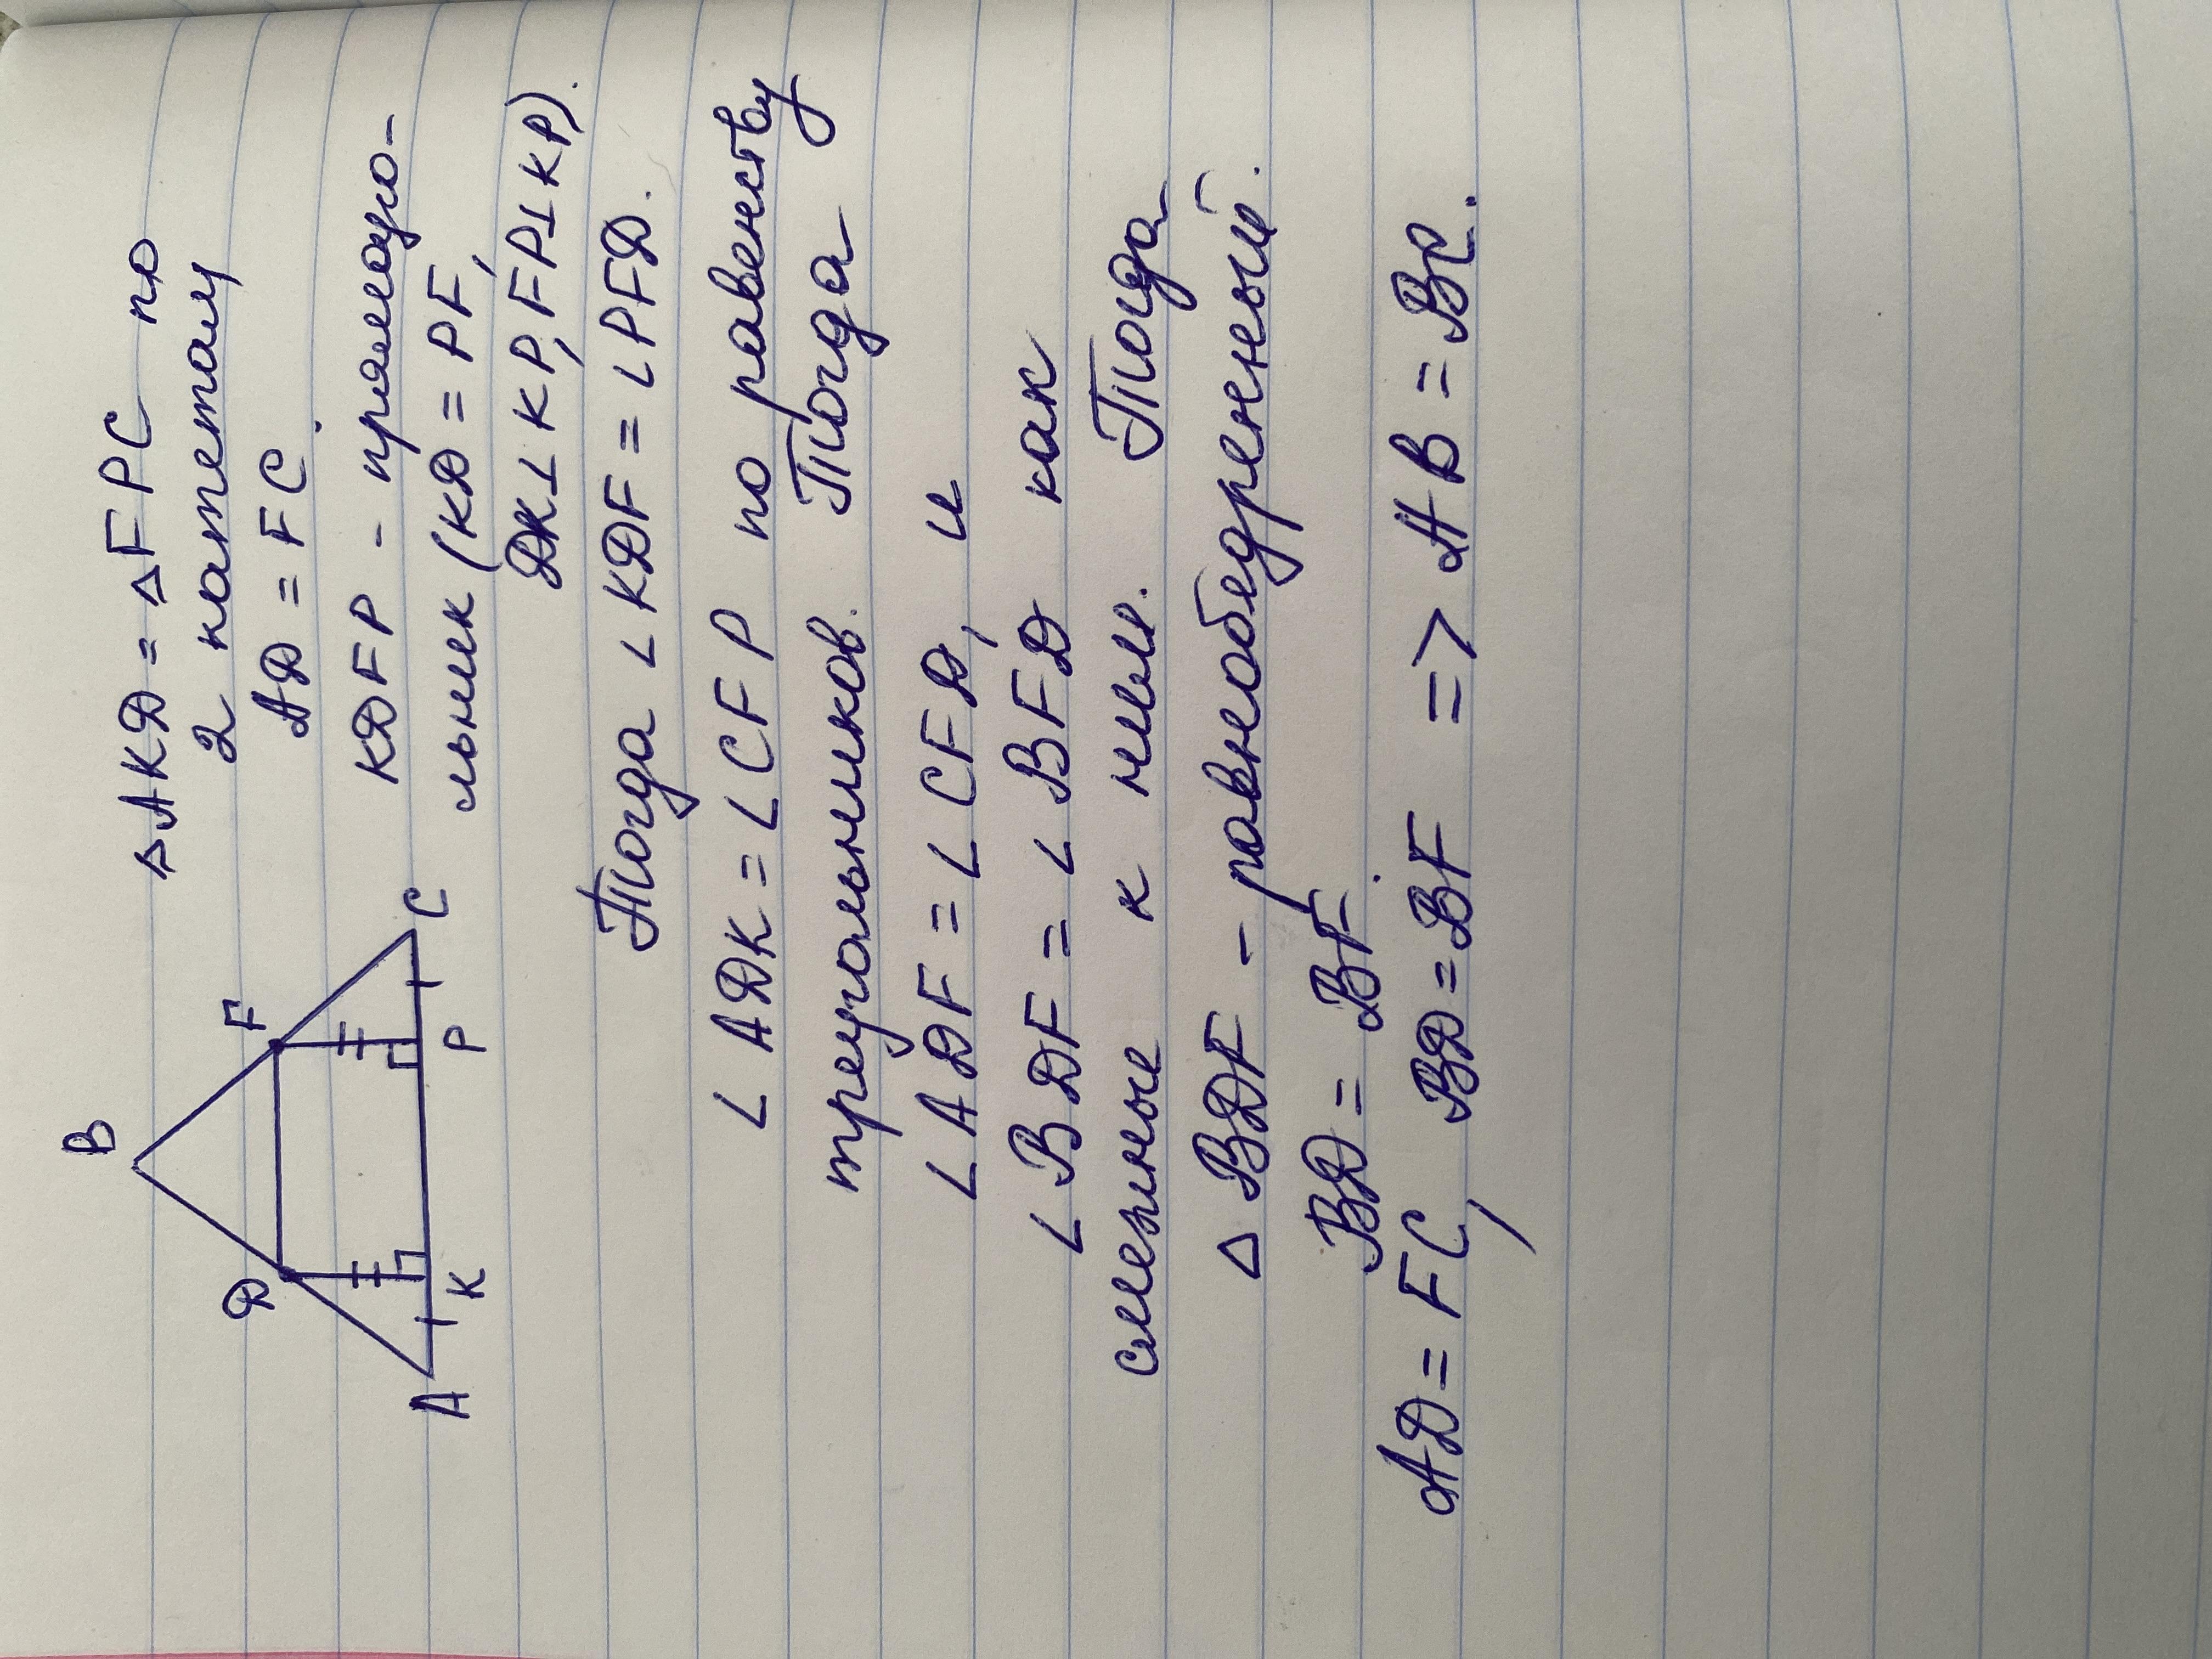 B
D
F
A
K
P
C
△AKD = △FPC по
2 катетам
AD = FC.
KDFP - прямоуго-
льник (KD = PF,
DK⊥KP, FP⊥KP).
Тогда ∠KDF = ∠PFD.
∠ADK = ∠CFP по равенству
треугольников. Тогда
∠ADF = ∠CFD, и
∠BDF = ∠BFD как
смежные к ним. Тогда
△BDF - равнобедренный.
BD = BF.
AD = FC, BD = BF => AB = BC.